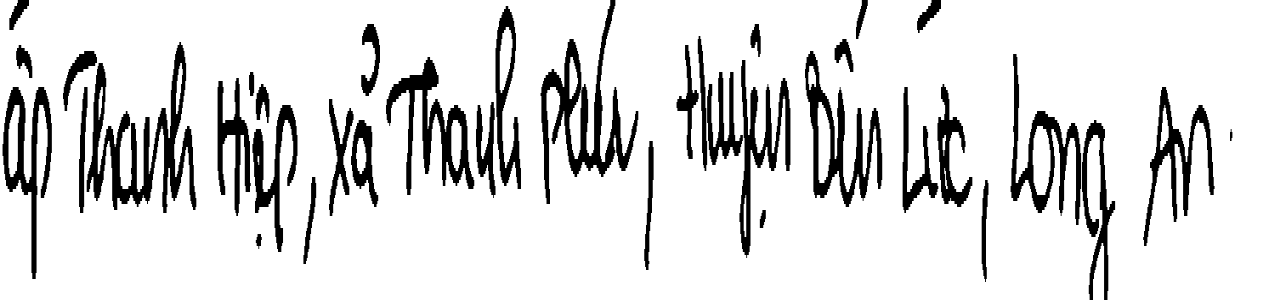 ấp Thanh Hiệp, xã Thanh Phú, Huyện Bến Lức, Long An